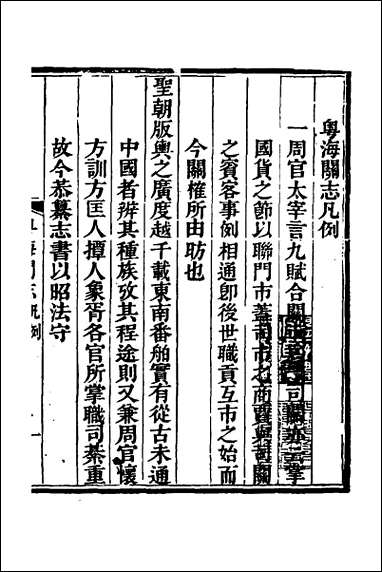 粵海關志凡例
一周官太宰言九賦合關市司關掌
國貨之節以聯門市蓋司市之商賈與司關
之賓客事例相通卽後世職貢互市之始而
今關榷所由昉也
聖朝版輿之廣度越千載東南番舶實有從古未通
中國者辨其種族攷其程途則又兼周官懷
方訓方匡人撢人象胥各官所掌職司綦重
故今恭纂志書以昭法守
粵海關志凡例 一